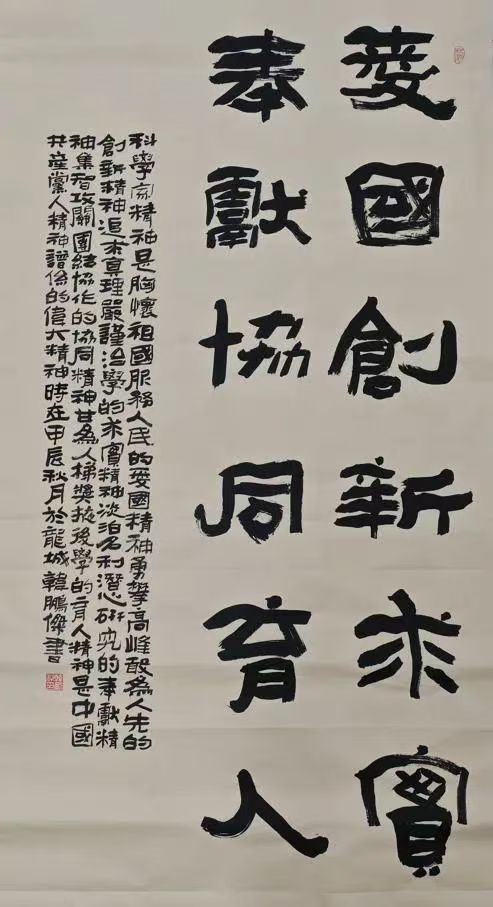 愛國創新求實
奉獻協同育人
科學家精神是胸懷祖國服務人民的愛國精神勇攀高峰敢為人先的
創新精神追求真理嚴謹治學的求實精神淡泊名利潛心研究的奉獻精
神集智攻關團結協作的協同精神甘為人梯獎掖後學的育人精神是中國
共産黨人精神譜係的偉大精神時在甲辰秋月於龍城韓鵬傑書